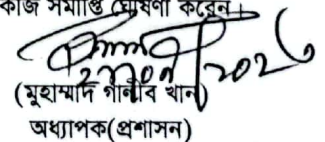 কাজ সমাপ্তি ঘোষণা করেন।
(মুহাম্মাদ গালীব খান)
অধ্যাপক(প্রশাসন)